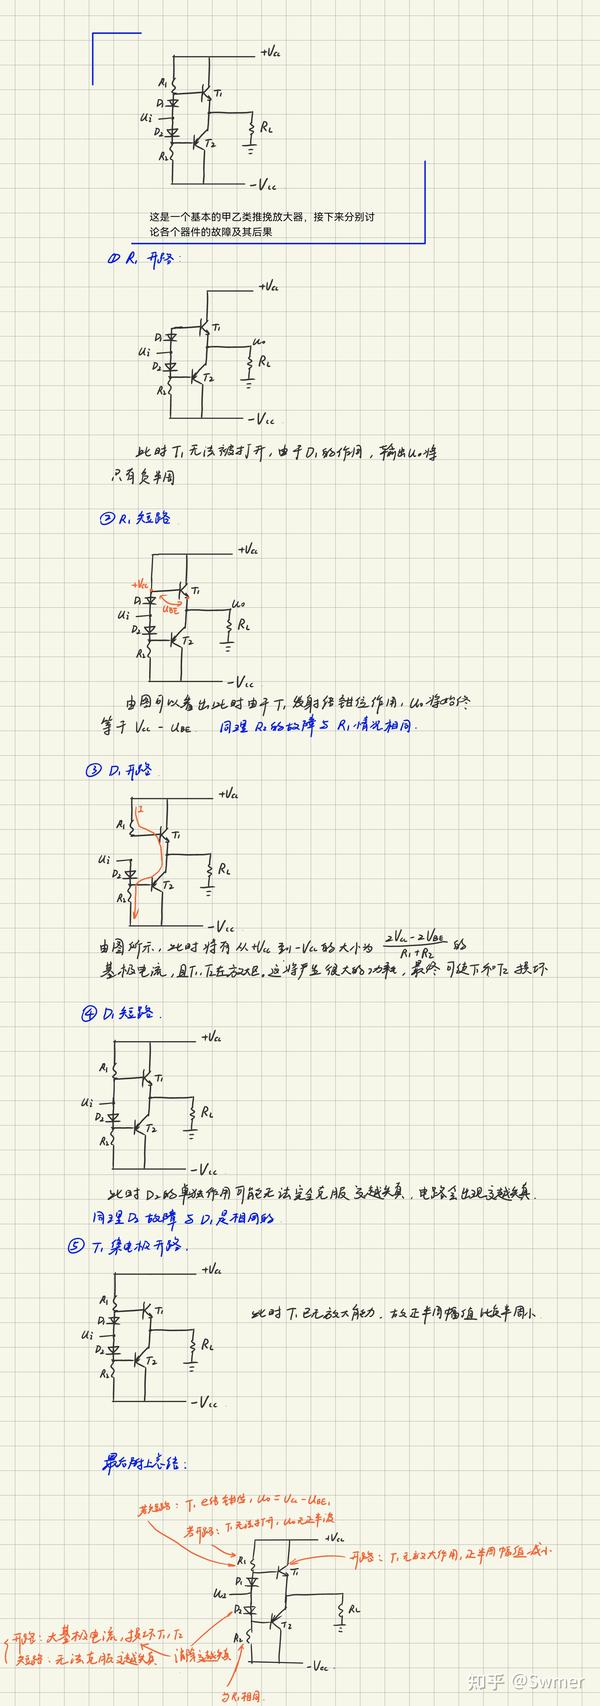 +Vcc
R₁
T₁
D₁
ui
D₂
T₂
RL
R₂
-Vcc
这是一个基本的甲乙类推挽放大器，接下来分别讨
论各个器件的故障及其后果
① R₁ 开路:
+Vcc
T₁
D₁
uo
ui
D₂
RL
T₂
R₂
-Vcc
此时T₁无法被打开,由于D₁的作用,输出uo将
只有负半周
② R₁ 短路
+Vcc
+Vcc
T₁
D₁
UBE
uo
ui
D₂
RL
T₂
R₂
-Vcc
由图可以看出,此时由于T₁发射结钳位作用,uo将始终
等于 Vcc - UBE 同理R₂的故障与R₁情况相同.
③ D₁ 开路
+Vcc
I
R₁
T₁
ui
D₂
RL
T₂
R₂
-Vcc
由图所示,此时将有从+Vcc到-Vcc的大小为 (2Vcc-2UBE)/(R₁+R₂) 的
基极电流,且T₁,T₂在放大区,这将产生很大的功耗,最终可使T₁和T₂损坏
④ D₁ 短路.
+Vcc
R₁
T₁
ui
D₂
RL
T₂
R₂
-Vcc
此时D₂的单独作用可能无法完全克服交越失真,电路会出现交越失真.
同理D₂故障与D₁是相同的
⑤ T₁ 集电极开路.
+Vcc
R₁
T₁
D₁
ui
D₂
RL
T₂
R₂
-Vcc
此时T₁已无放大能力,故正半周幅值比负半周小.
最后附上总结:
若短路: T₁ e结钳位, uo = Vcc - UBE,
若开路: T₁无法打开, uo无正半波
+Vcc
R₁
T₁
开路: T₁无放大作用,正半周幅值减小
D₁
D₂
RL
T₂
R₂
开路: 大基极电流,损坏T₁,T₂
短路: 无法克服交越失真
消除交越失真
-Vcc
与R₁相同.
知乎 @Swmer